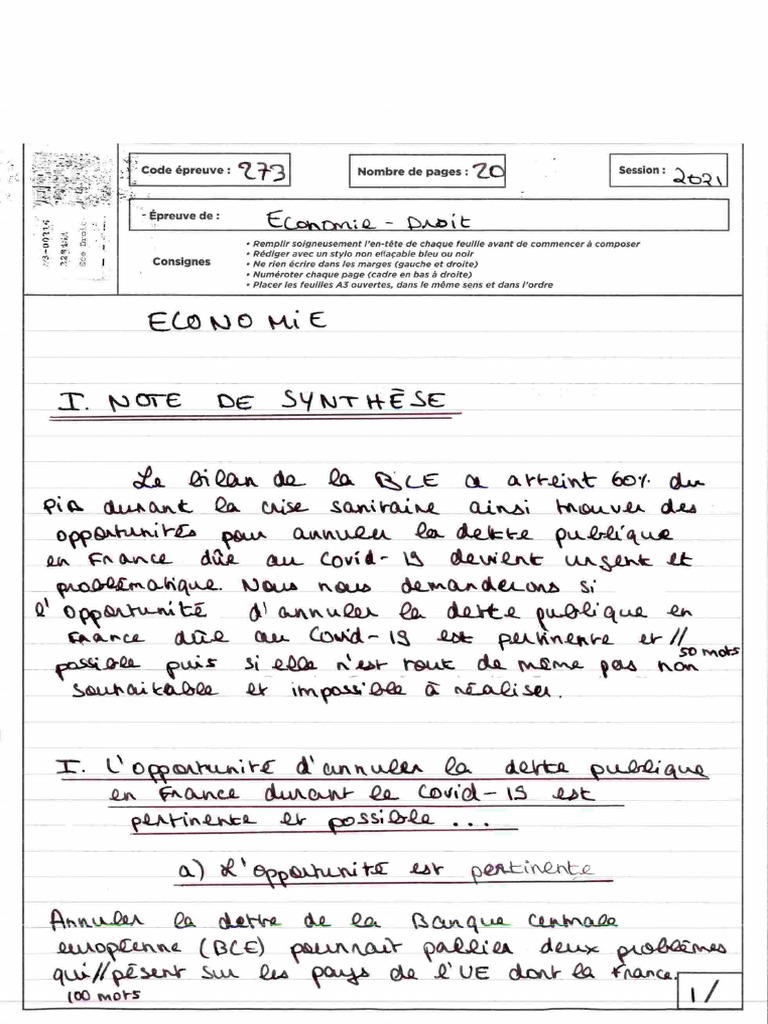 Code épreuve : 273
Nombre de pages : 20
Session : 2021
- Épreuve de : Economie - Droit
Consignes
• Remplir soigneusement l'en-tête de chaque feuille avant de commencer à composer
• Rédiger avec un stylo non effaçable bleu ou noir
• Ne rien écrire dans les marges (gauche et droite)
• Numéroter chaque page (cadre en bas à droite)
• Placer les feuilles A3 ouvertes, dans le même sens et dans l'ordre
ECONOMIE
I. NOTE DE SYNTHÈSE
Le bilan de la BCE a atteint 60% du
PIB durant la crise sanitaire ainsi trouver des
opportunités pour annuler la dette publique
en France dûe au Covid-19 devient urgent et
problématique. Nous nous demanderons si
l'opportunité d'annuler la dette publique en
France dûe au Covid-19 est pertinente et //
50 mots
possible puis si elle n'est tout de même pas non
souhaitable et impossible à réaliser.
I. L'opportunité d'annuler la dette publique
en France durant le Covid-19 est
pertinente et possible ...
a) L'opportunité est pertinente
Annuler la dette de la Banque centrale
européenne (BCE) pourrait pallier deux problèmes
qui // pèsent sur les pays de l'UE dont la France.
100 mots
1/